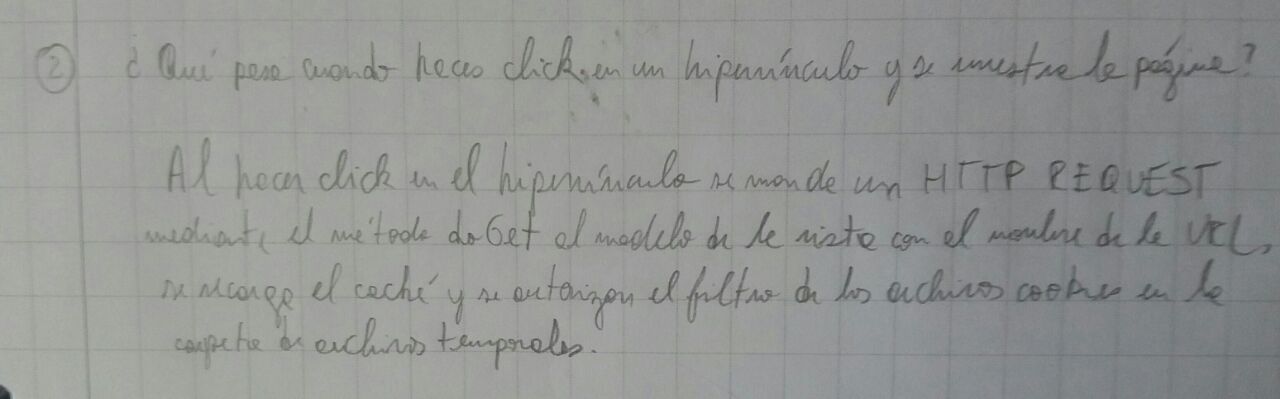 ② ¿Qué pasa cuando haces click en un hipervínculo y se muestra la página?
Al hacer click en el hipervínculo se manda un HTTP REQUEST
mediante el método doGet al modelo de la vista con el nombre de la URL,
se recarga el caché y se autorizan el filtro de los archivos cookies en la
carpeta de archivos temporales.